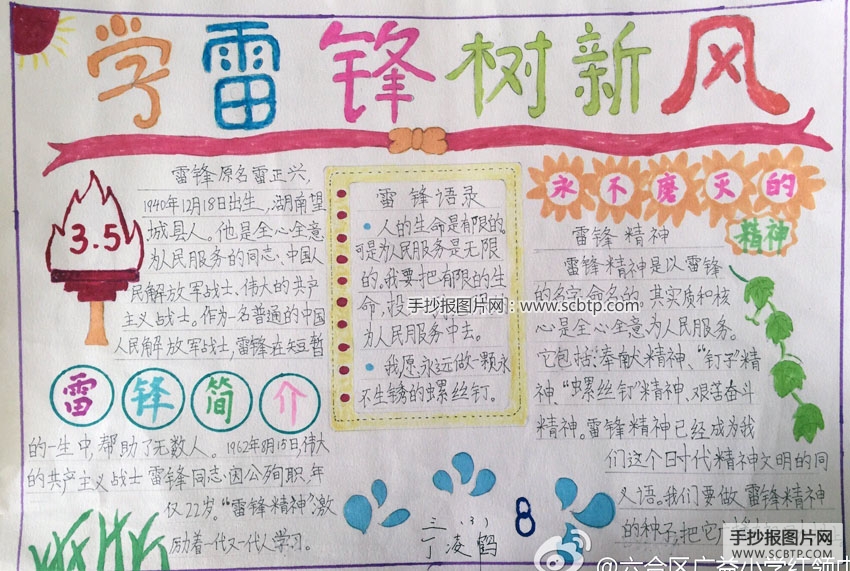 学雷锋树新风
3.5
雷锋原名雷正兴，
1940年12月18日出生，湖南望
城县人。他是全心全意
为人民服务的同志、中国人
民解放军战士、伟大的共产
主义战士。作为一名普通的中国
人民解放军战士，雷锋在短暂
雷锋简介
的一生中，帮助了无数人。1962年8月15日伟大
的共产主义战士雷锋同志因公殉职，年
仅22岁。“雷锋精神”激
励着一代又一代人学习。
雷锋语录
人的生命是有限的。
可是为人民服务是无限
的，我要把有限的生
命，投
为人民服务中去。
我愿永远做一颗永
不生锈的螺丝钉。
手抄报图片网：www.scbtp.com
永不磨灭的
精神
雷锋精神
雷锋精神是以雷锋
的名字命名的，其实质和核
心是全心全意为人民服务。
它包括：奉献精神、“钉子”精
神、“螺丝钉”精神、艰苦奋斗
精神。雷锋精神已经成为我
们这个时代精神文明的同
义语。我们要做雷锋精神
的种子，把它
三（3）
丁凌鹤
8
手抄报图片网
WWW.SCBTP.COM
@六合区广益小学红领巾